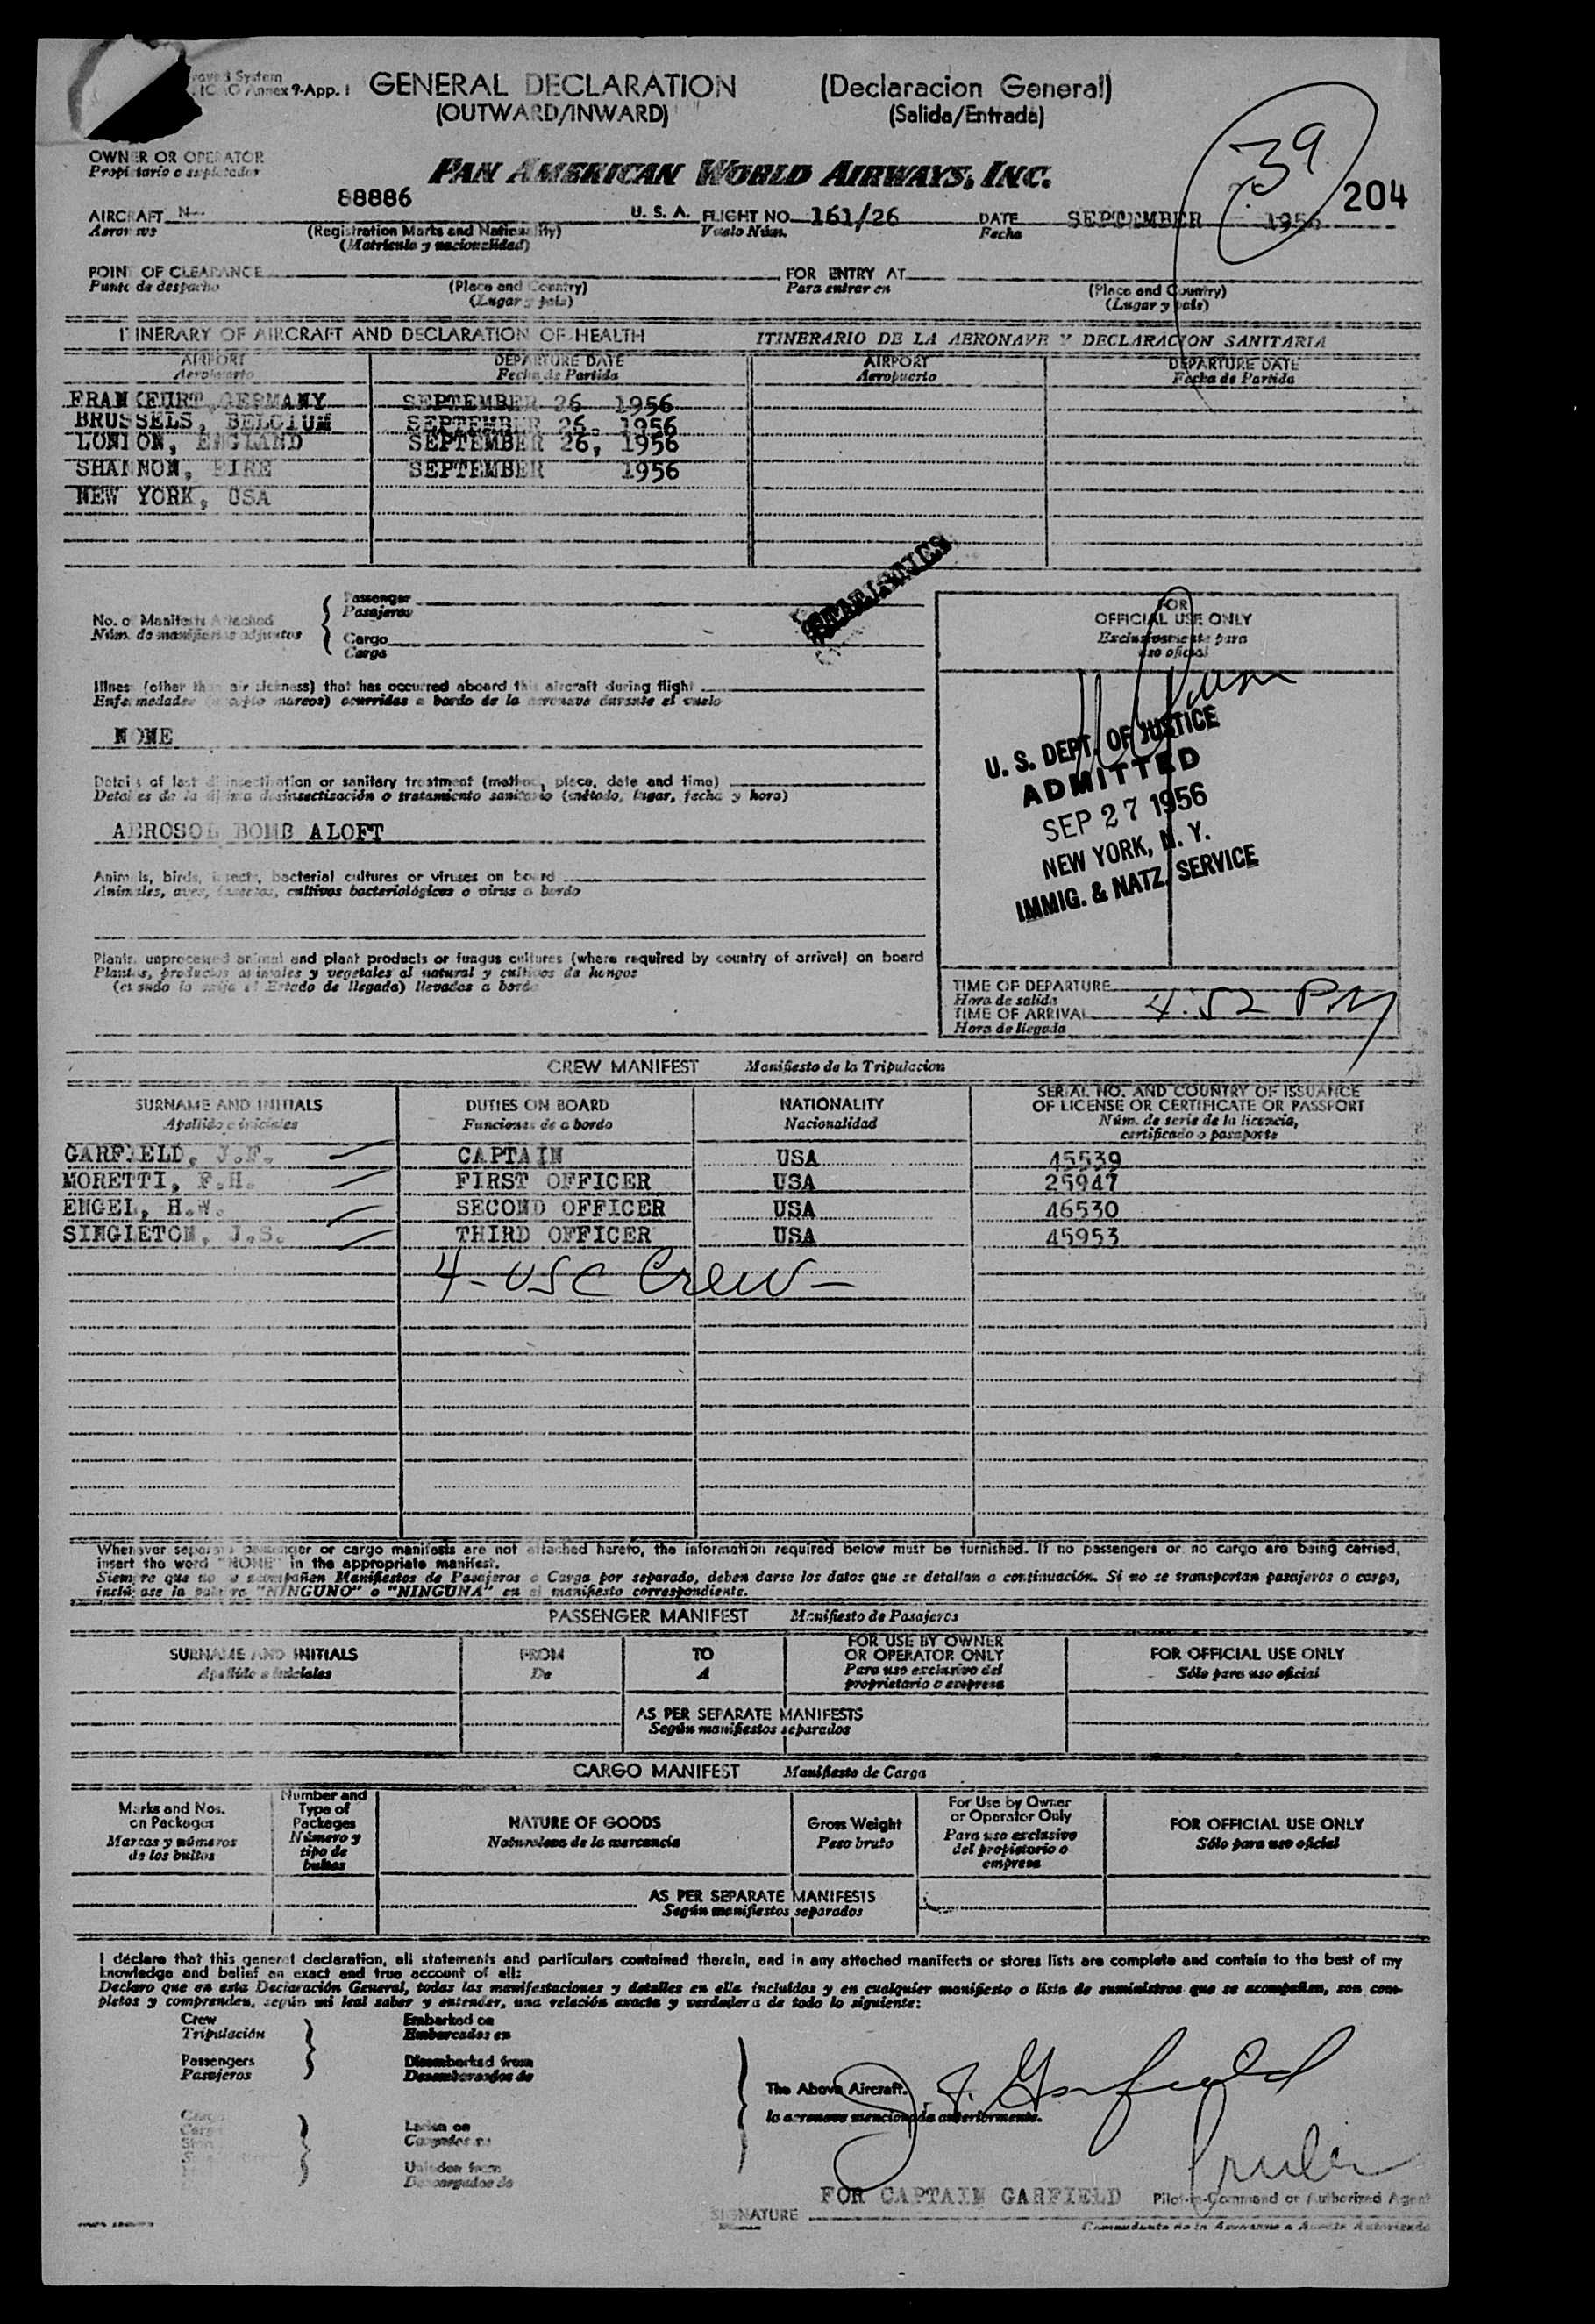 Annex 9-App. 1 GENERAL DECLARATION (Declaracion General)
(OUTWARD/INWARD) (Salida/Entrada)
39
OWNER OR OPERATOR
Propietario o explotador
PAN AMERICAN WORLD AIRWAYS, INC.
204
AIRCRAFT N- 88886 U. S. A. FLIGHT NO. 161/26 DATE SEPTEMBER 1956
Aeronave (Registration Marks and Nationality) Vuelo Núm. Fecha
(Matrícula y nacionalidad)
POINT OF CLEARANCE FOR ENTRY AT
Punto de despacho (Place and Country) Para entrar en (Place and Country)
(Lugar y país) (Lugar y país)
ITINERARY OF AIRCRAFT AND DECLARATION OF HEALTH ITINERARIO DE LA AERONAVE Y DECLARACION SANITARIA
AIRPORT DEPARTURE DATE AIRPORT DEPARTURE DATE
Aeropuerto Fecha de Partida Aeropuerto Fecha de Partida
FRANKFURT, GERMANY SEPTEMBER 26 1956
BRUSSELS, BELGIUM SEPTEMBER 26, 1956
LONDON, ENGLAND SEPTEMBER 26, 1956
SHANNON, EIRE SEPTEMBER 1956
NEW YORK, USA
STATISTICS
No. of Manifests Attached
Núm. de manifiestos adjuntos
Passenger
Pasajeros
Cargo
Carga
Illness (other than air sickness) that has occurred aboard this aircraft during flight
Enfermedades (excepto mareos) ocurridas a bordo de la aeronave durante el vuelo
NONE
Details of last disinsectization or sanitary treatment (method, place, date and time)
Detalles de la última desinsectización o tratamiento sanitario (método, lugar, fecha y hora)
AEROSOL BOMB ALOFT
Animals, birds, insects, bacterial cultures or viruses on board
Animales, aves, insectos, cultivos bacteriológicos o virus a bordo
Plants, unprocessed animal and plant products or fungus cultures (where required by country of arrival) on board
Plantas, productos animales y vegetales al natural y cultivos de hongos
(cuando lo exija el Estado de llegada) llevados a bordo
FOR
OFFICIAL USE ONLY
Exclusivamente para
uso oficial
U. S. DEPT. OF JUSTICE
ADMITTED
SEP 27 1956
NEW YORK, N. Y.
IMMIG. & NATZ. SERVICE
TIME OF DEPARTURE
Hora de salida
TIME OF ARRIVAL 4:52 PM
Hora de llegada
CREW MANIFEST Manifiesto de la Tripulacion
SURNAME AND INITIALS DUTIES ON BOARD NATIONALITY SERIAL NO. AND COUNTRY OF ISSUANCE
OF LICENSE OR CERTIFICATE OR PASSPORT
Apellido e iniciales Funciones de a bordo Nacionalidad Núm. de serie de la licencia,
certificado o pasaporte
GARFIELD, J.F. CAPTAIN USA 45539
MORETTI, F.H. FIRST OFFICER USA 25947
ENGEL, H.W. SECOND OFFICER USA 46530
SINGLETON, J.S. THIRD OFFICER USA 45953
4- USC Crew-
Whenever separate passenger or cargo manifests are not attached hereto, the information required below must be furnished. If no passengers or no cargo are being carried,
insert the word "NONE" in the appropriate manifest.
Siempre que no se acompañen Manifiestos de Pasajeros o Carga por separado, deben darse los datos que se detallan a continuación. Si no se transportan pasajeros o carga,
inclúyase la palabra "NINGUNO" o "NINGUNA" en el manifiesto correspondiente.
PASSENGER MANIFEST Manifiesto de Pasajeros
SURNAME AND INITIALS FROM TO FOR USE BY OWNER
OR OPERATOR ONLY FOR OFFICIAL USE ONLY
Apellido e iniciales De A Para uso exclusivo del
proprietario o empresa Sólo para uso oficial
AS PER SEPARATE MANIFESTS
Según manifiestos separados
CARGO MANIFEST Manifiesto de Carga
Marks and Nos.
on Packages
Marcas y números
de los bultos
Number and
Type of
Packages
Número y
tipo de
bultos
NATURE OF GOODS
Naturaleza de la mercancía
Gross Weight
Peso bruto
For Use by Owner
or Operator Only
Para uso exclusivo
del propietario o
empresa
FOR OFFICIAL USE ONLY
Sólo para uso oficial
AS PER SEPARATE MANIFESTS
Según manifiestos separados
I declare that this general declaration, all statements and particulars contained therein, and in any attached manifests or stores lists are complete and contain to the best of my
knowledge and belief an exact and true account of all:
Declaro que en esta Declaración General, todas las manifestaciones y detalles en ella incluídos y en cualquier manifiesto o lista de suministros que se acompañen, son com-
pletos y comprenden, según mi leal saber y entender, una relación exacta y verdadera de todo lo siguiente:
Crew
Tripulación
Passengers
Pasajeros
Cargo
Carga
Embarked on
Embarcados en
Disembarked from
Desembarcados de
Laden on
Cargados en
Unladen from
Descargados de
The Above Aircraft.
la aeronave mencionada anteriormente.
J. F. Garfield
FOR CAPTAIN GARFIELD Pilot-in-Command or Authorized Agent
SIGNATURE
Comandante de la Aeronave o Agente Autorizado